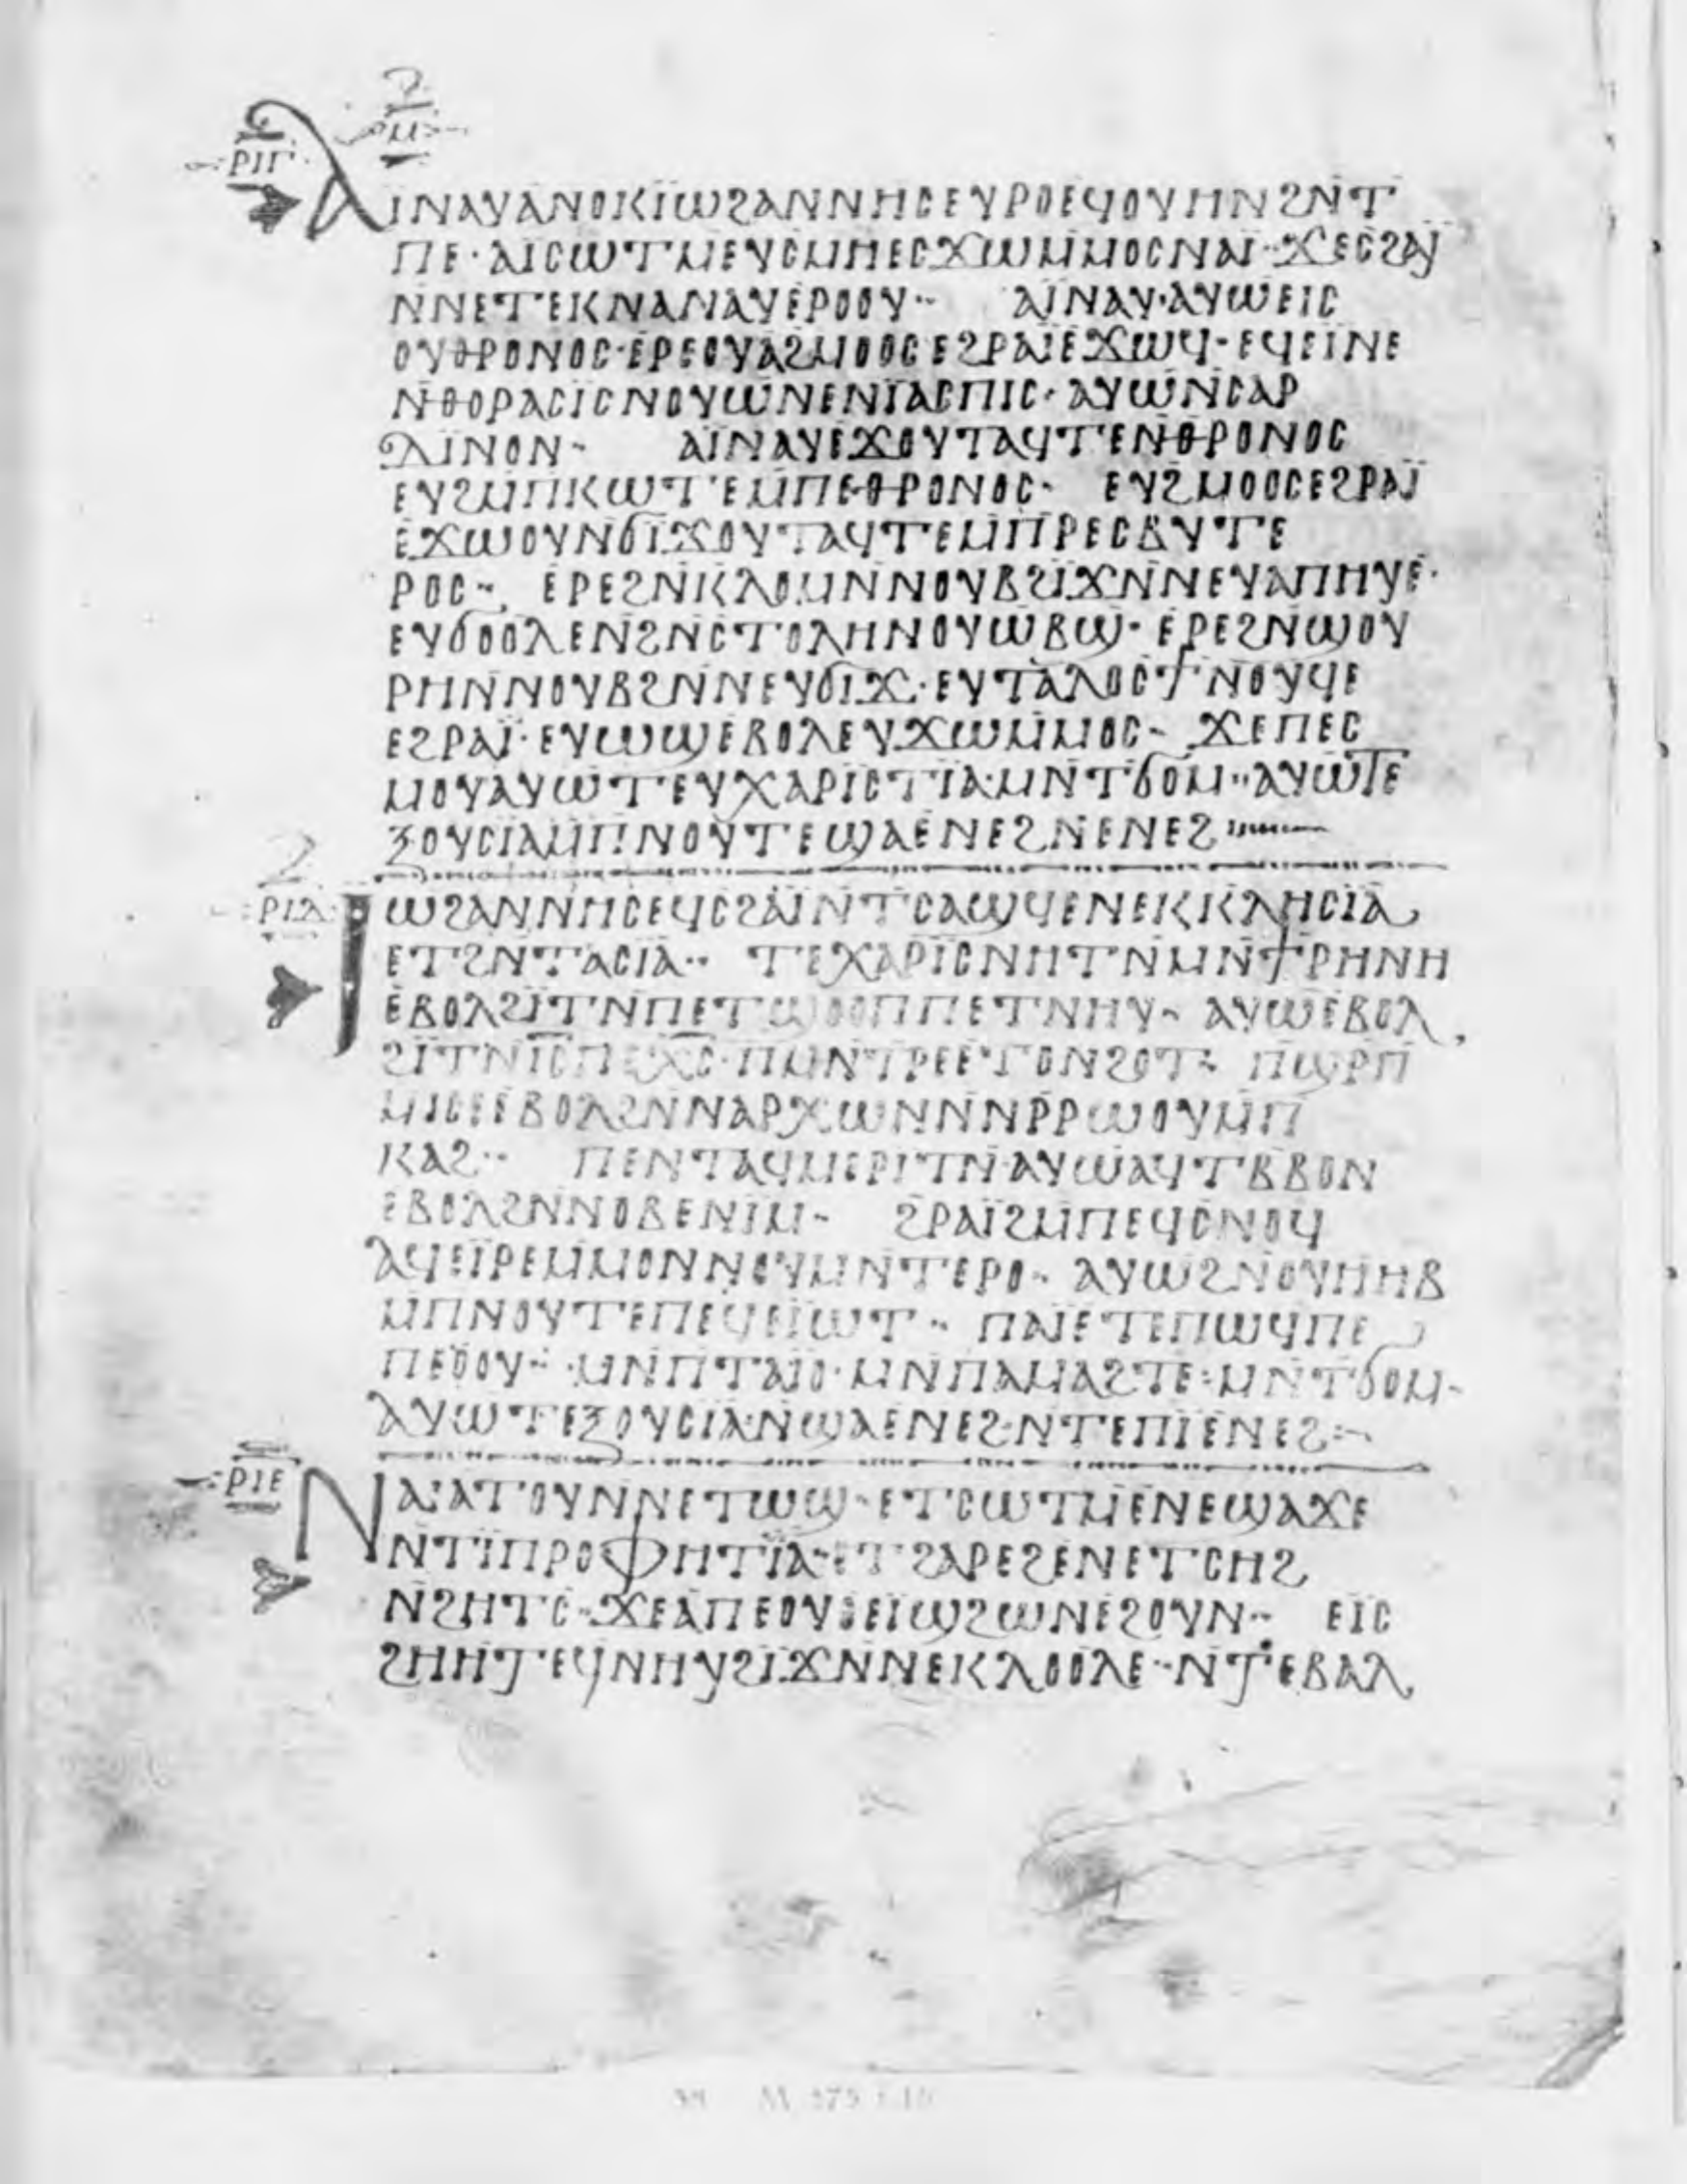 ⲙ̅
ⲣⲓⲅ
ⲀⲒⲚⲀⲨⲀⲚⲞⲔⲒⲰϨⲀⲚⲚⲎⲤⲈⲨⲢⲞⲈϤⲞⲨⲎⲚϨⲚⲦ
ⲠⲈ·ⲀⲒⲤⲰⲦⲘⲈⲨⲤⲘⲎⲈⲤϪⲰⲘⲘⲞⲤⲚⲀⲒ··ϪⲈⲤϨⲀⲒ
ⲚⲚⲈⲦⲈⲔⲚⲀⲚⲀⲨⲈⲢⲞⲞⲨ·· ⲀⲒⲚⲀⲨ·ⲀⲨⲰⲈⲒⲤ
ⲞⲨⲐⲢⲞⲚⲞⲤ·ⲈⲢⲈⲞⲨⲀϨⲘⲞⲞⲤⲈϨⲢⲀⲒⲈϪⲰϤ·ⲈϤⲈⲒⲚⲈ
ⲚⲐⲞⲢⲀⲤⲒⲤⲚⲞⲨⲰⲚⲈⲚⲒⲀⲤⲠⲒⲤ·ⲀⲨⲰⲚⲤⲀⲢ
ⲆⲒⲚⲞⲚ· ⲀⲒⲚⲀⲨⲈϪⲞⲨⲦⲀϤⲦⲈⲚⲐⲢⲞⲚⲞⲤ
ⲈⲨϨⲘⲠⲔⲰⲦⲈⲘⲠⲈⲐⲢⲞⲚⲞⲤ· ⲈⲨϨⲘⲞⲞⲤⲈϨⲢⲀⲒ
ⲈϪⲰⲞⲨⲚϬⲒϪⲞⲨⲦⲀϤⲦⲈⲘⲠⲢⲈⲤⲂⲨⲦⲈ
ⲢⲞⲤ·· ⲈⲢⲈϨⲚⲔⲖⲞⲘⲚⲚⲞⲨⲂϨⲒϪⲚⲚⲈⲨⲀⲠⲎⲨⲈ·
ⲈⲨϬⲞⲞⲖⲈⲚϨⲚⲤⲦⲞⲖⲎⲚⲞⲨⲰⲂϢ·ⲈⲢⲈϨⲚϢⲞⲨ
ⲢⲎⲚⲚⲞⲨⲂϨⲚⲚⲈⲨϬⲒϪ·ⲈⲨⲦⲀⲖⲞⲤϮⲚⲞⲨϤⲈ
ⲈϨⲢⲀⲒ·ⲈⲨⲰϢⲈⲂⲞⲖⲈⲨϪⲰⲘⲘⲞⲤ· ϪⲈⲠⲈⲤ
ⲘⲞⲨⲀⲨⲰⲦⲈⲨⲬⲀⲢⲒⲤⲦⲒⲀ·ⲘⲚⲦϬⲞⲘ··ⲀⲨⲰⲦⲈ
ⲜⲞⲨⲤⲒⲀⲘⲠⲚⲞⲨⲦⲈϢⲀⲈⲚⲈϨⲚⲈⲚⲈϨ
ⲣⲓⲇ
ⲒⲰϨⲀⲚⲚⲎⲤⲈϤⲤϨⲀⲒⲚⲦⲤⲀϢϤⲈⲚⲈⲔⲔⲖⲎⲤⲒⲀ
ⲈⲦϨⲚⲦⲀⲤⲒⲀ·· ⲦⲈⲬⲀⲢⲒⲤⲚⲎⲦⲚⲘⲚϮⲢⲎⲚⲎ
ⲈⲂⲞⲖϨⲒⲦⲚⲠⲈⲦϢⲞⲞⲠⲠⲈⲦⲚⲎⲨ· ⲀⲨⲰⲈⲂⲞⲖ
ϨⲒⲦⲚⲒ̅Ⲥ̅ⲠⲈⲬ̅Ⲥ̅·ⲠⲘⲚⲦⲢⲈⲈⲦⲞⲚϨⲞⲦ· ⲠϢⲢⲠ
ⲘⲒⲤⲈⲈⲂⲞⲖϨⲚⲚⲀⲢⲬⲰⲚⲚⲚⲢⲢⲰⲞⲨⲘⲠ
ⲔⲀϨ·· ⲠⲈⲚⲦⲀϤⲘⲈⲢⲒⲦⲚ·ⲀⲨⲰⲀϤⲦⲂⲂⲞⲚ
ⲈⲂⲞⲖϨⲚⲚⲞⲂⲈⲚⲒⲘ· ϨⲢⲀⲒϨⲘⲠⲈϤⲤⲚⲞϤ
ⲀϤⲈⲒⲢⲈⲘⲘⲞⲚⲚⲞⲨⲘⲚⲦⲈⲢⲞ· ⲀⲨⲰϨⲚⲞⲨⲎⲎⲂ
ⲘⲠⲚⲞⲨⲦⲈⲠⲈϤⲈⲒⲰⲦ·· ⲠⲀⲒⲈⲦⲈⲠⲰϤⲠⲈ
ⲠⲈⲞⲞⲨ··ⲘⲚⲠⲦⲀⲒⲞ·ⲘⲚⲠⲀⲘⲀϨⲦⲈ:ⲘⲚⲦϬⲞⲘ·
ⲀⲨⲰⲦⲈⲜⲞⲨⲤⲒⲀ·ⲚϢⲀⲈⲚⲈϨ·ⲚⲦⲈⲠⲒⲈⲚⲈϨ:
ⲣⲓⲉ
ⲚⲀⲒⲀⲦⲞⲨⲚⲚⲈⲦⲰϢ·ⲈⲦⲤⲰⲦⲘⲈⲚⲈϢⲀϪⲈ
ⲚⲦⲒⲠⲢⲞⲪⲎⲦⲒⲀ·ⲈⲦϨⲀⲢⲈϨⲈⲚⲈⲦⲤⲎϨ
ⲚϨⲎⲦⲤ·ϪⲈⲀⲠⲈⲞⲨⲞⲈⲒϢϨⲰⲚⲈϨⲞⲨⲚ·· ⲈⲒⲤ
ϨⲎⲎⲦⲈϤⲚⲎⲨϨⲒϪⲚⲚⲈⲔⲖⲞⲞⲖⲈ··ⲚⲦⲈⲂⲀⲖ